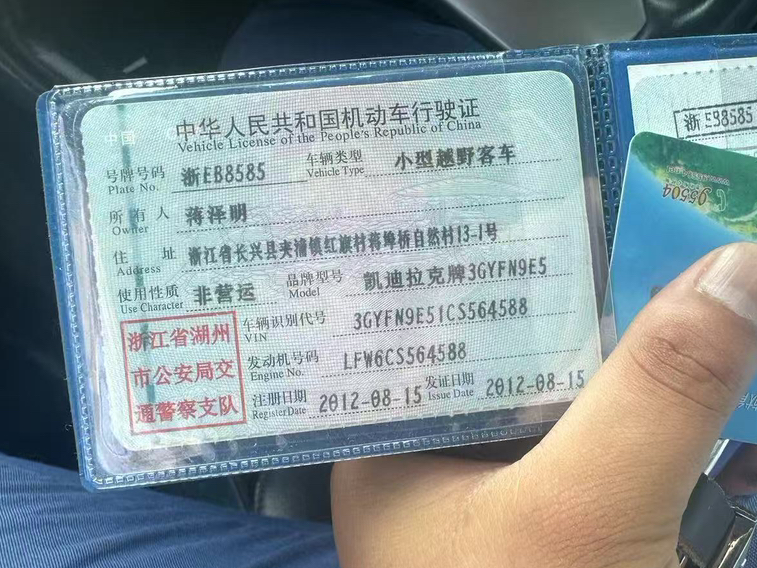 中国
中华人民共和国机动车行驶证
Vehicle License of the People's Republic of China
号牌号码 浙EB8585 车辆类型 小型越野客车
Plate No. Vehicle Type
所有人 蒋泽明
Owner
住址 浙江省长兴县夹浦镇红旗村蒋婢桥自然村13-1号
Address
使用性质 非营运 品牌型号 凯迪拉克牌3GYFN9E5
Use Character Model
车辆识别代号 3GYFN9E51CS564588
VIN
发动机号码 LFW6CS564588
Engine No.
注册日期 2012-08-15 发证日期 2012-08-15
Register Date Issue Date
浙江省湖州
市公安局交
通警察支队
浙EB8585
95504